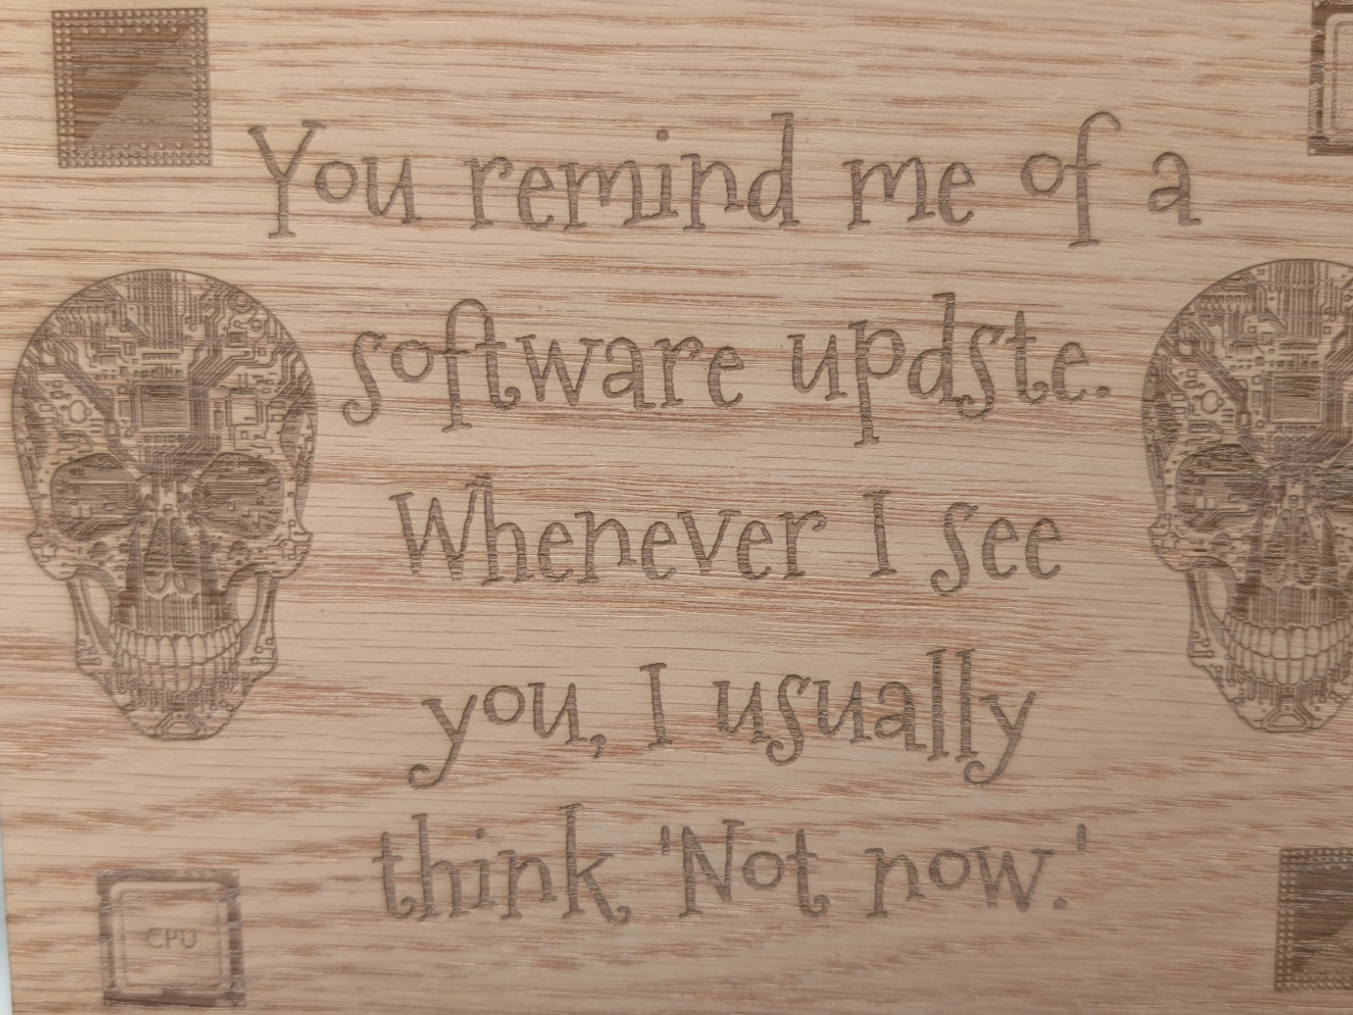 You remind me of a
software updste.
Whenever I see
you, I usually
think 'Not now.'
CPU